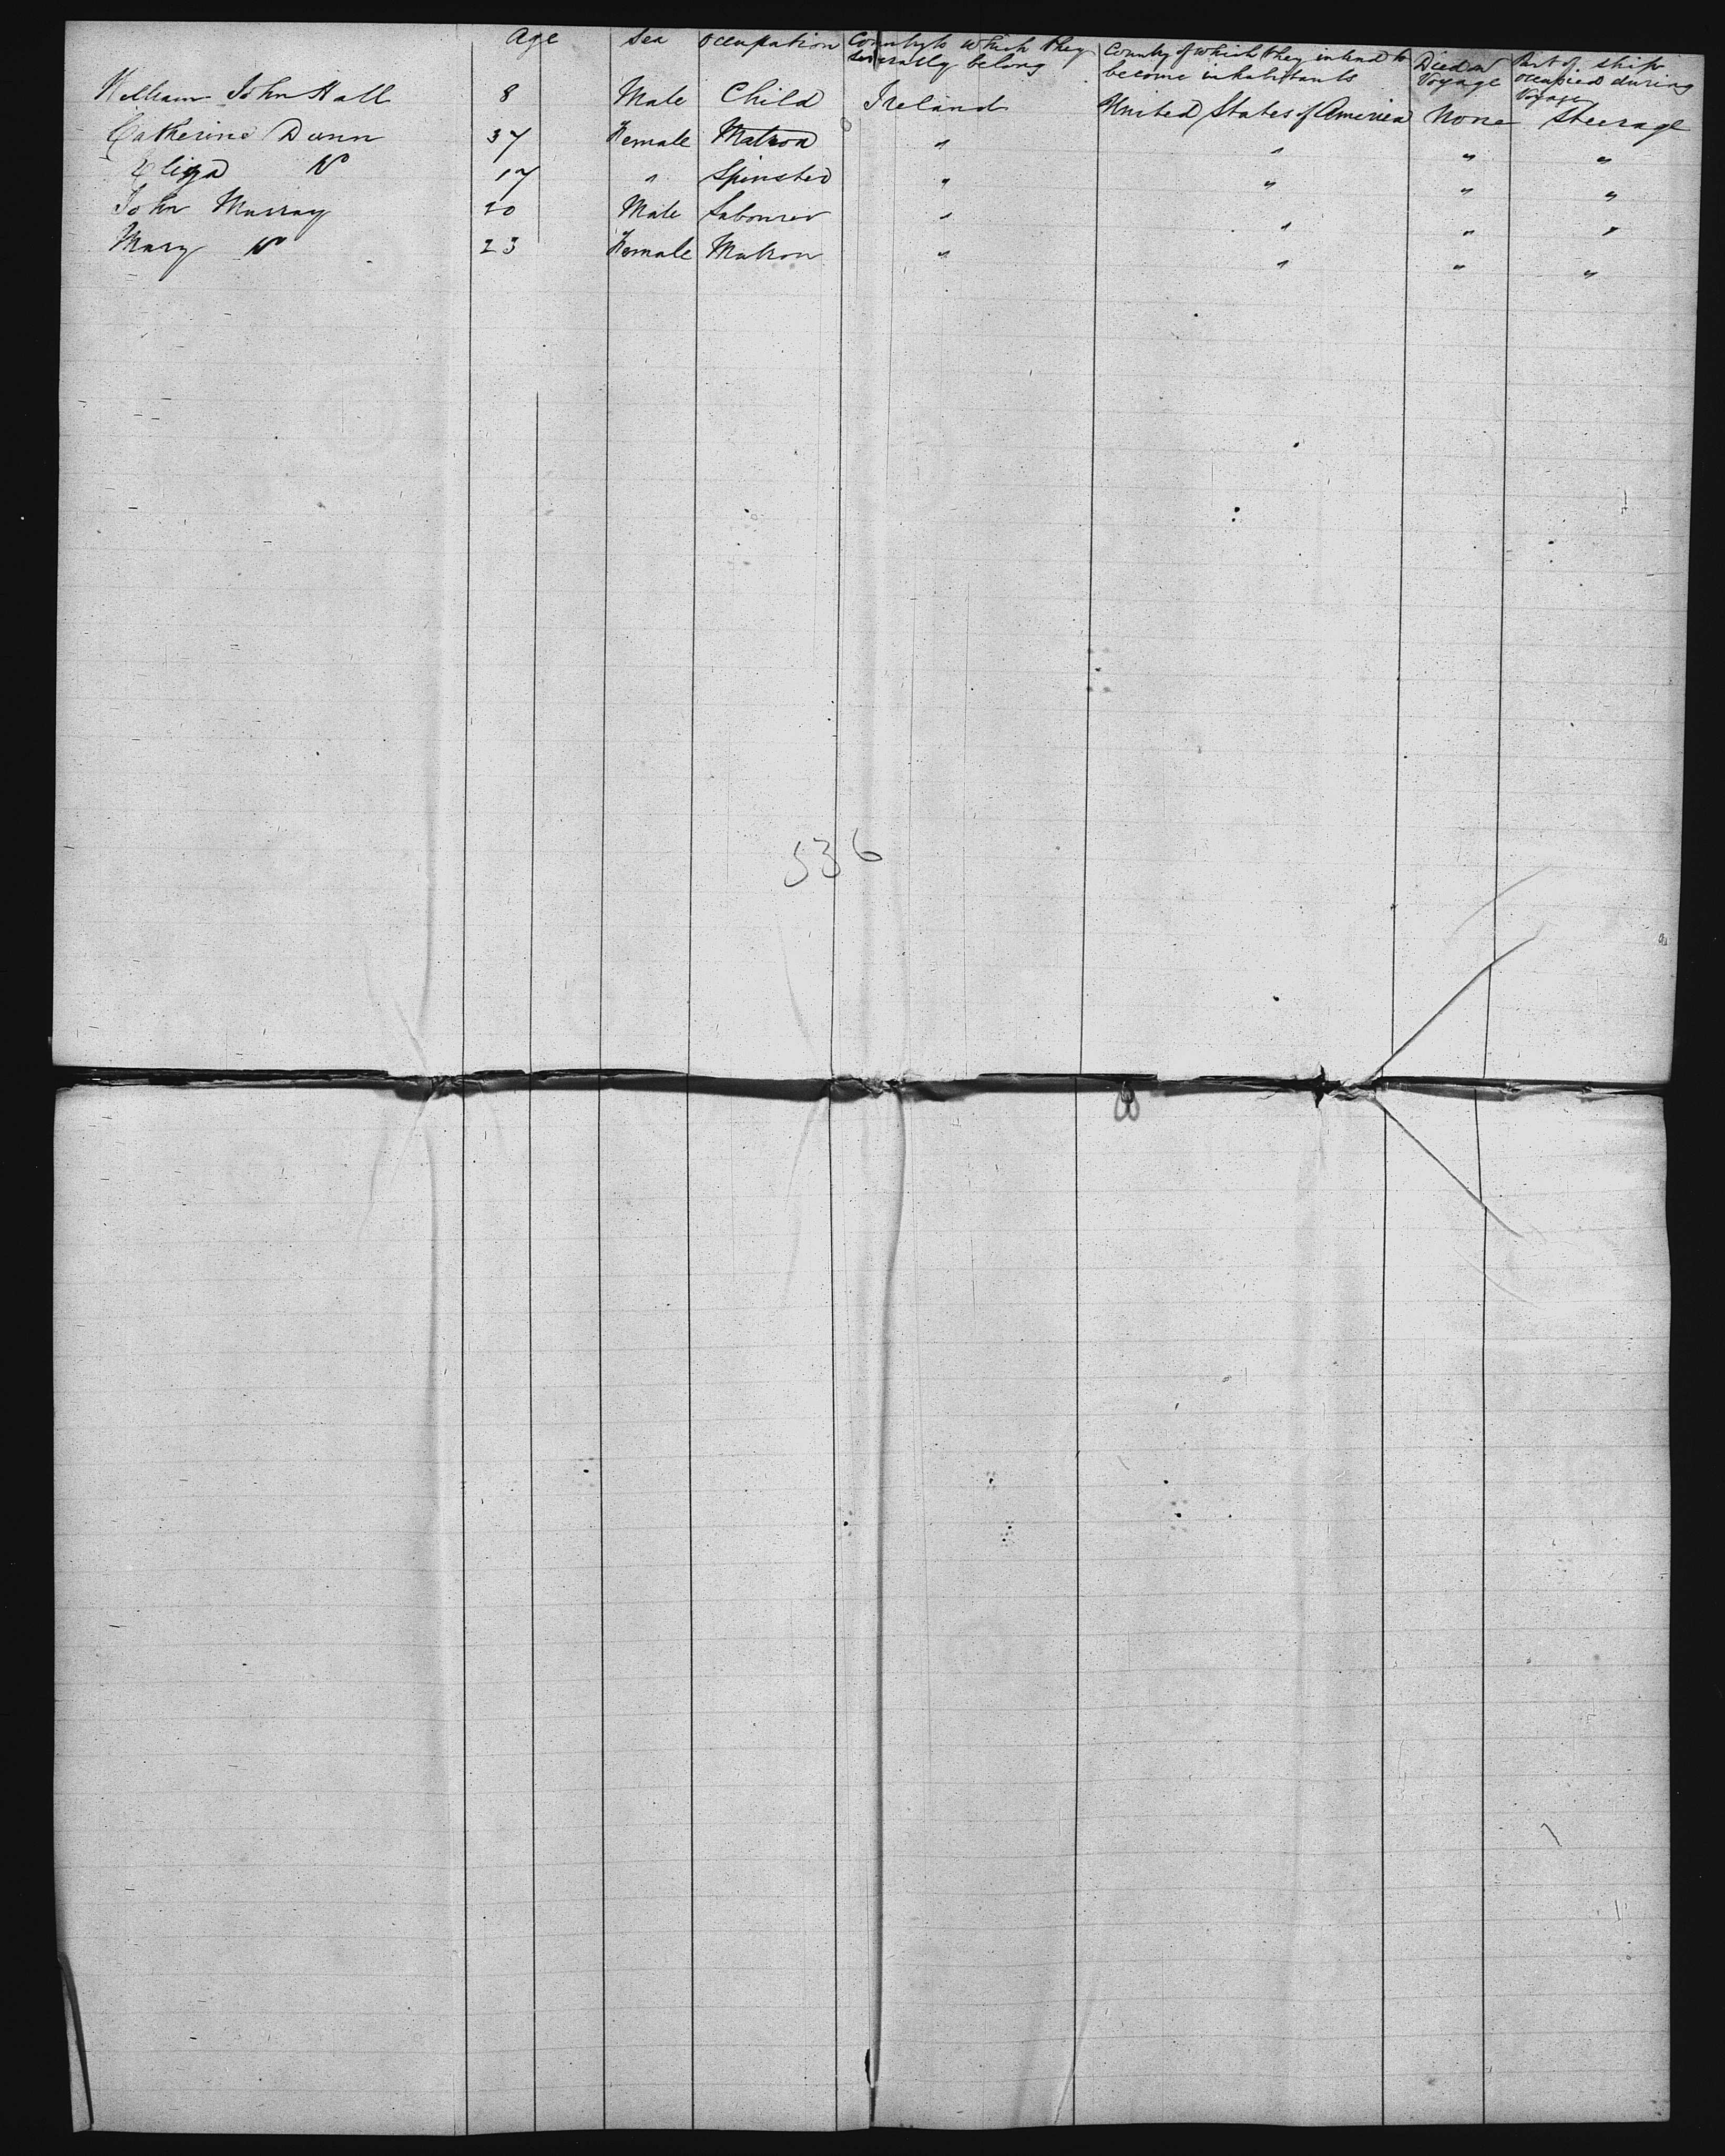 Age Sex occupation Country to which they severally belong Country of which they intend to become inhabitants Died on Voyage Part of ship occupied during Voyage
William John Hall 8 Male Child Ireland United States of America None Steerage
Catherine Dunn 37 Female Matron " " " "
Eliza Do 17 " Spinster " " " "
John Murray 20 Male Labourer " " " "
Mary Do 23 Female Matron " " " "
536